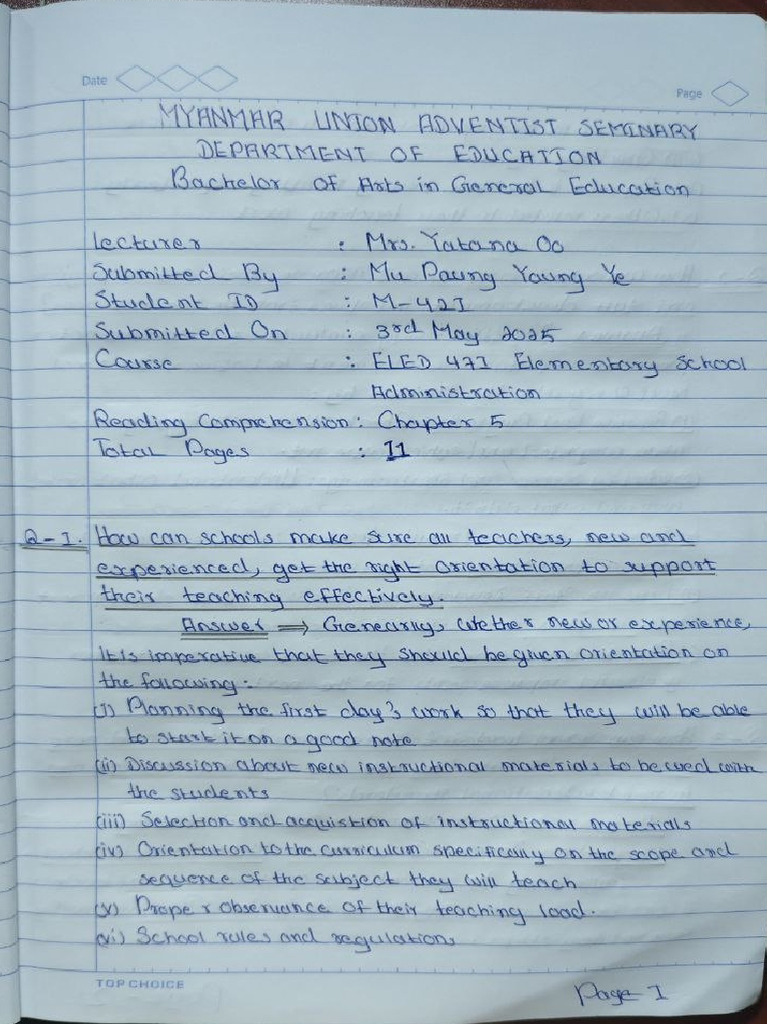 Date
Page
MYANMAR UNION ADVENTIST SEMINARY
DEPARTMENT OF EDUCATION
Bachelor of Arts in General Education
Lecturer : Mrs. Yatana Oo
Submitted By : Mu Paung Young Ye
Student ID : M-421
Submitted On : 3rd May 2025
Course : ELED 471 Elementary School
Administration
Reading Comprehension : Chapter 5
Total Pages : 11
Q-1. How can schools make sure all teachers, new and
experienced, get the right orientation to support
their teaching effectively.
Answer ⇒ Genearlly, whether new or experience,
It is imperative that they should be given orientation on
the following :
(i) Planning the first day's work so that they will be able
to start it on a good note
(ii) Discussion about new instructional materials to be used with
the students
(iii) Selection and acquistion of instructional materials
(iv) Orientation to the curriculum specifically on the scope and
sequence of the subject they will teach
(v) Proper observance of their teaching load.
(vi) School rules and regulations
TOP CHOICE
Page 1